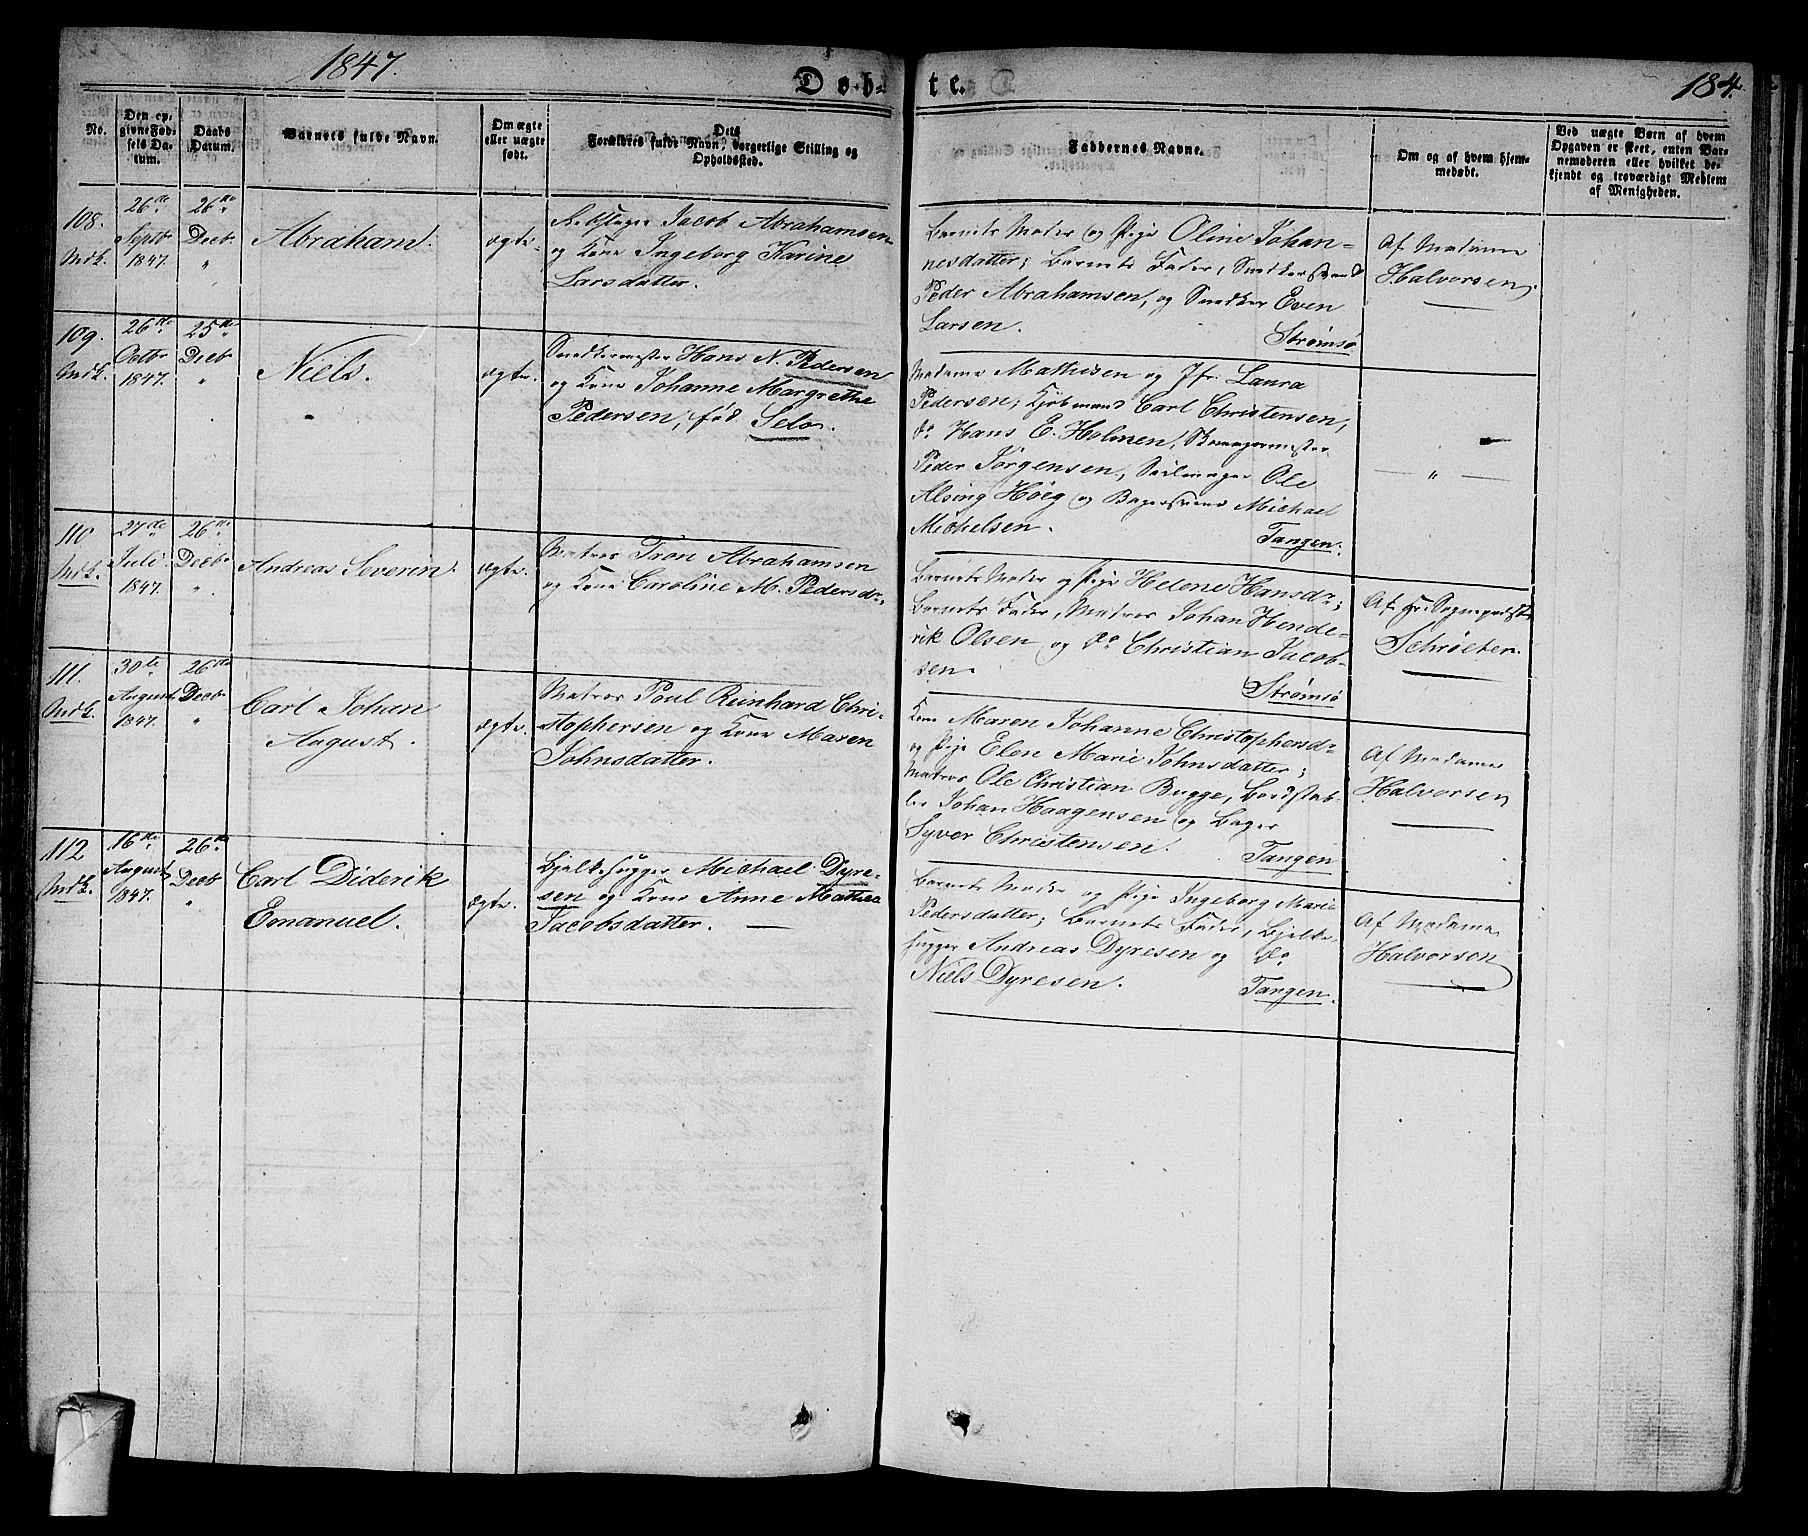 1847.
Døb-
te.
184.
No.
Den op-
givne Fød-
sels Da-
tum.
Daabs
Datum.
Barnets fulde Navn.
Om ægte
eller uægte
født.
Dets
Forældres fulde Navn, borgerlige Stilling og
Opholdssted.
Faddernes Navne.
Om og af hvem hjem-
medøbt.
Ved uægte Børn af hvem
Opgaven er skeet, enten Bar-
nemoderen eller hvilket be-
kjendt og troværdigt Medlem
af Menigheden.
108.
Mdk.
26de
Septbr
1847.
26de
Decbr
"
Abraham.
ægte.
Jacob Abrahamsen
og Kone Ingeborg Karine
Larsdatter.
Barnets Moder og Pige Oline Johan-
nesdatter; Barnets Fader, Snedkersvend
Peder Abrahamsen, og Snedker Even
Larsen.
Strømsø
Af Madame
Halvorsen.
109.
Mdk.
26de
Octbr
1847.
25de
Decbr
"
Niels.
ægte.
Snedkermester Hans N. Pedersen
og Kone Johanne Margrethe
Pedersen, fød Selo.
Madame Mathisen og Jfr. Laura
Pedersen; Kjøbmand Carl Christensen,
do Hans E. Holmen,
Peder Jørgensen, Seilmager Ole
Alsing Høeg og Bagersvend Michael
Michelsen.
Tangen.
"
110
Mdk.
27de
Juli
1847.
26de
Decbr
"
Andreas Severin.
ægte.
Matros Tron Abrahamsen
og Kone Caroline M. Pedersdr.
Barnets Moder og Pige Helene Hansdr;
Barnets Fader, Matros Johan Hende-
rik Olsen og do Christian Jacob-
sen.
Strømsø
Af Hr. Sognepræst
Schrøeter.
111.
Mdk.
30te
August
1847.
26de
Decbr
"
Carl Johan
August.
ægte.
Matros Poul Reinhard Chri-
stophersen og Kone Maren
Johnsdatter.
Kone Maren Johanne Christophersdr
og Pige Elen Marie Johnsdatter;
Matros Ole Christian Bugge, Bordstab-
ler Johan Haagensen og Bager
Syver Christensen.
Tangen
Af Madame
Halvorsen
112
Mdk.
16de
August
1847.
26de
Decbr
"
Carl Diderik
Emanuel.
ægte.
Bjelkehugger Michael Dyre-
sen og Kone Anne Mathea
Jacobsdatter.
Barnets Moder og Pige Ingeborg Marie
Pedersdatter; Barnets Fader, Bjelke-
hugger Andreas Dyresen og do
Niels Dyresen.
Tangen.
Af Madame
Halvorsen